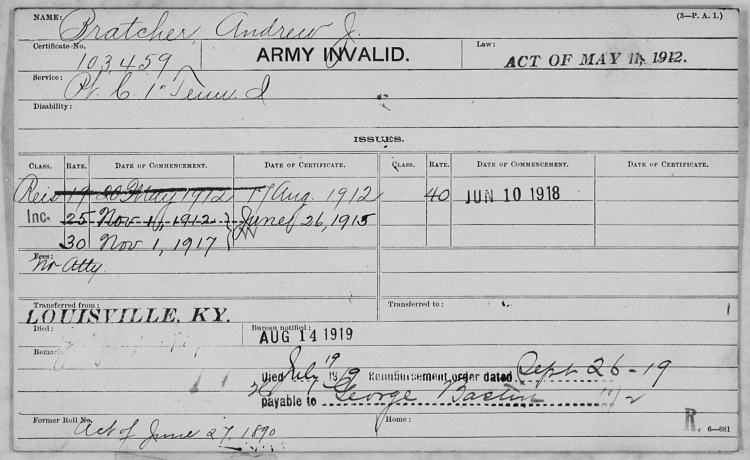 NAME: Bratcher, Andrew J. (3—P. A. 1.)
Certificate No. 103,459 ARMY INVALID. Law: ACT OF MAY 11, 1912.
Service: Pt. C. 1"
Disability:
ISSUES.
CLASS. RATE. DATE OF COMMENCEMENT. DATE OF CERTIFICATE. CLASS. RATE. DATE OF COMMENCEMENT. DATE OF CERTIFICATE.
Reis 19 20 May 1912 17 Aug. 1912 40 JUN 10 1918
Inc. 25 Nov 1, 1912 June 26, 1915
30 Nov 1, 1917
Fees: No Atty.
Transferred from: LOUISVILLE, KY. Transferred to:
Died: Bureau notified: AUG 14 1919
Remarks
Died July 19 1919 Reimbursement order dated Sept 26-19
payable to George Bastin
Former Roll No. Act of June 27, 1890 Home: R. 6—681